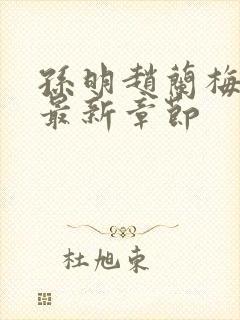 孫明趙蘭梅
最新章節
杜旭東